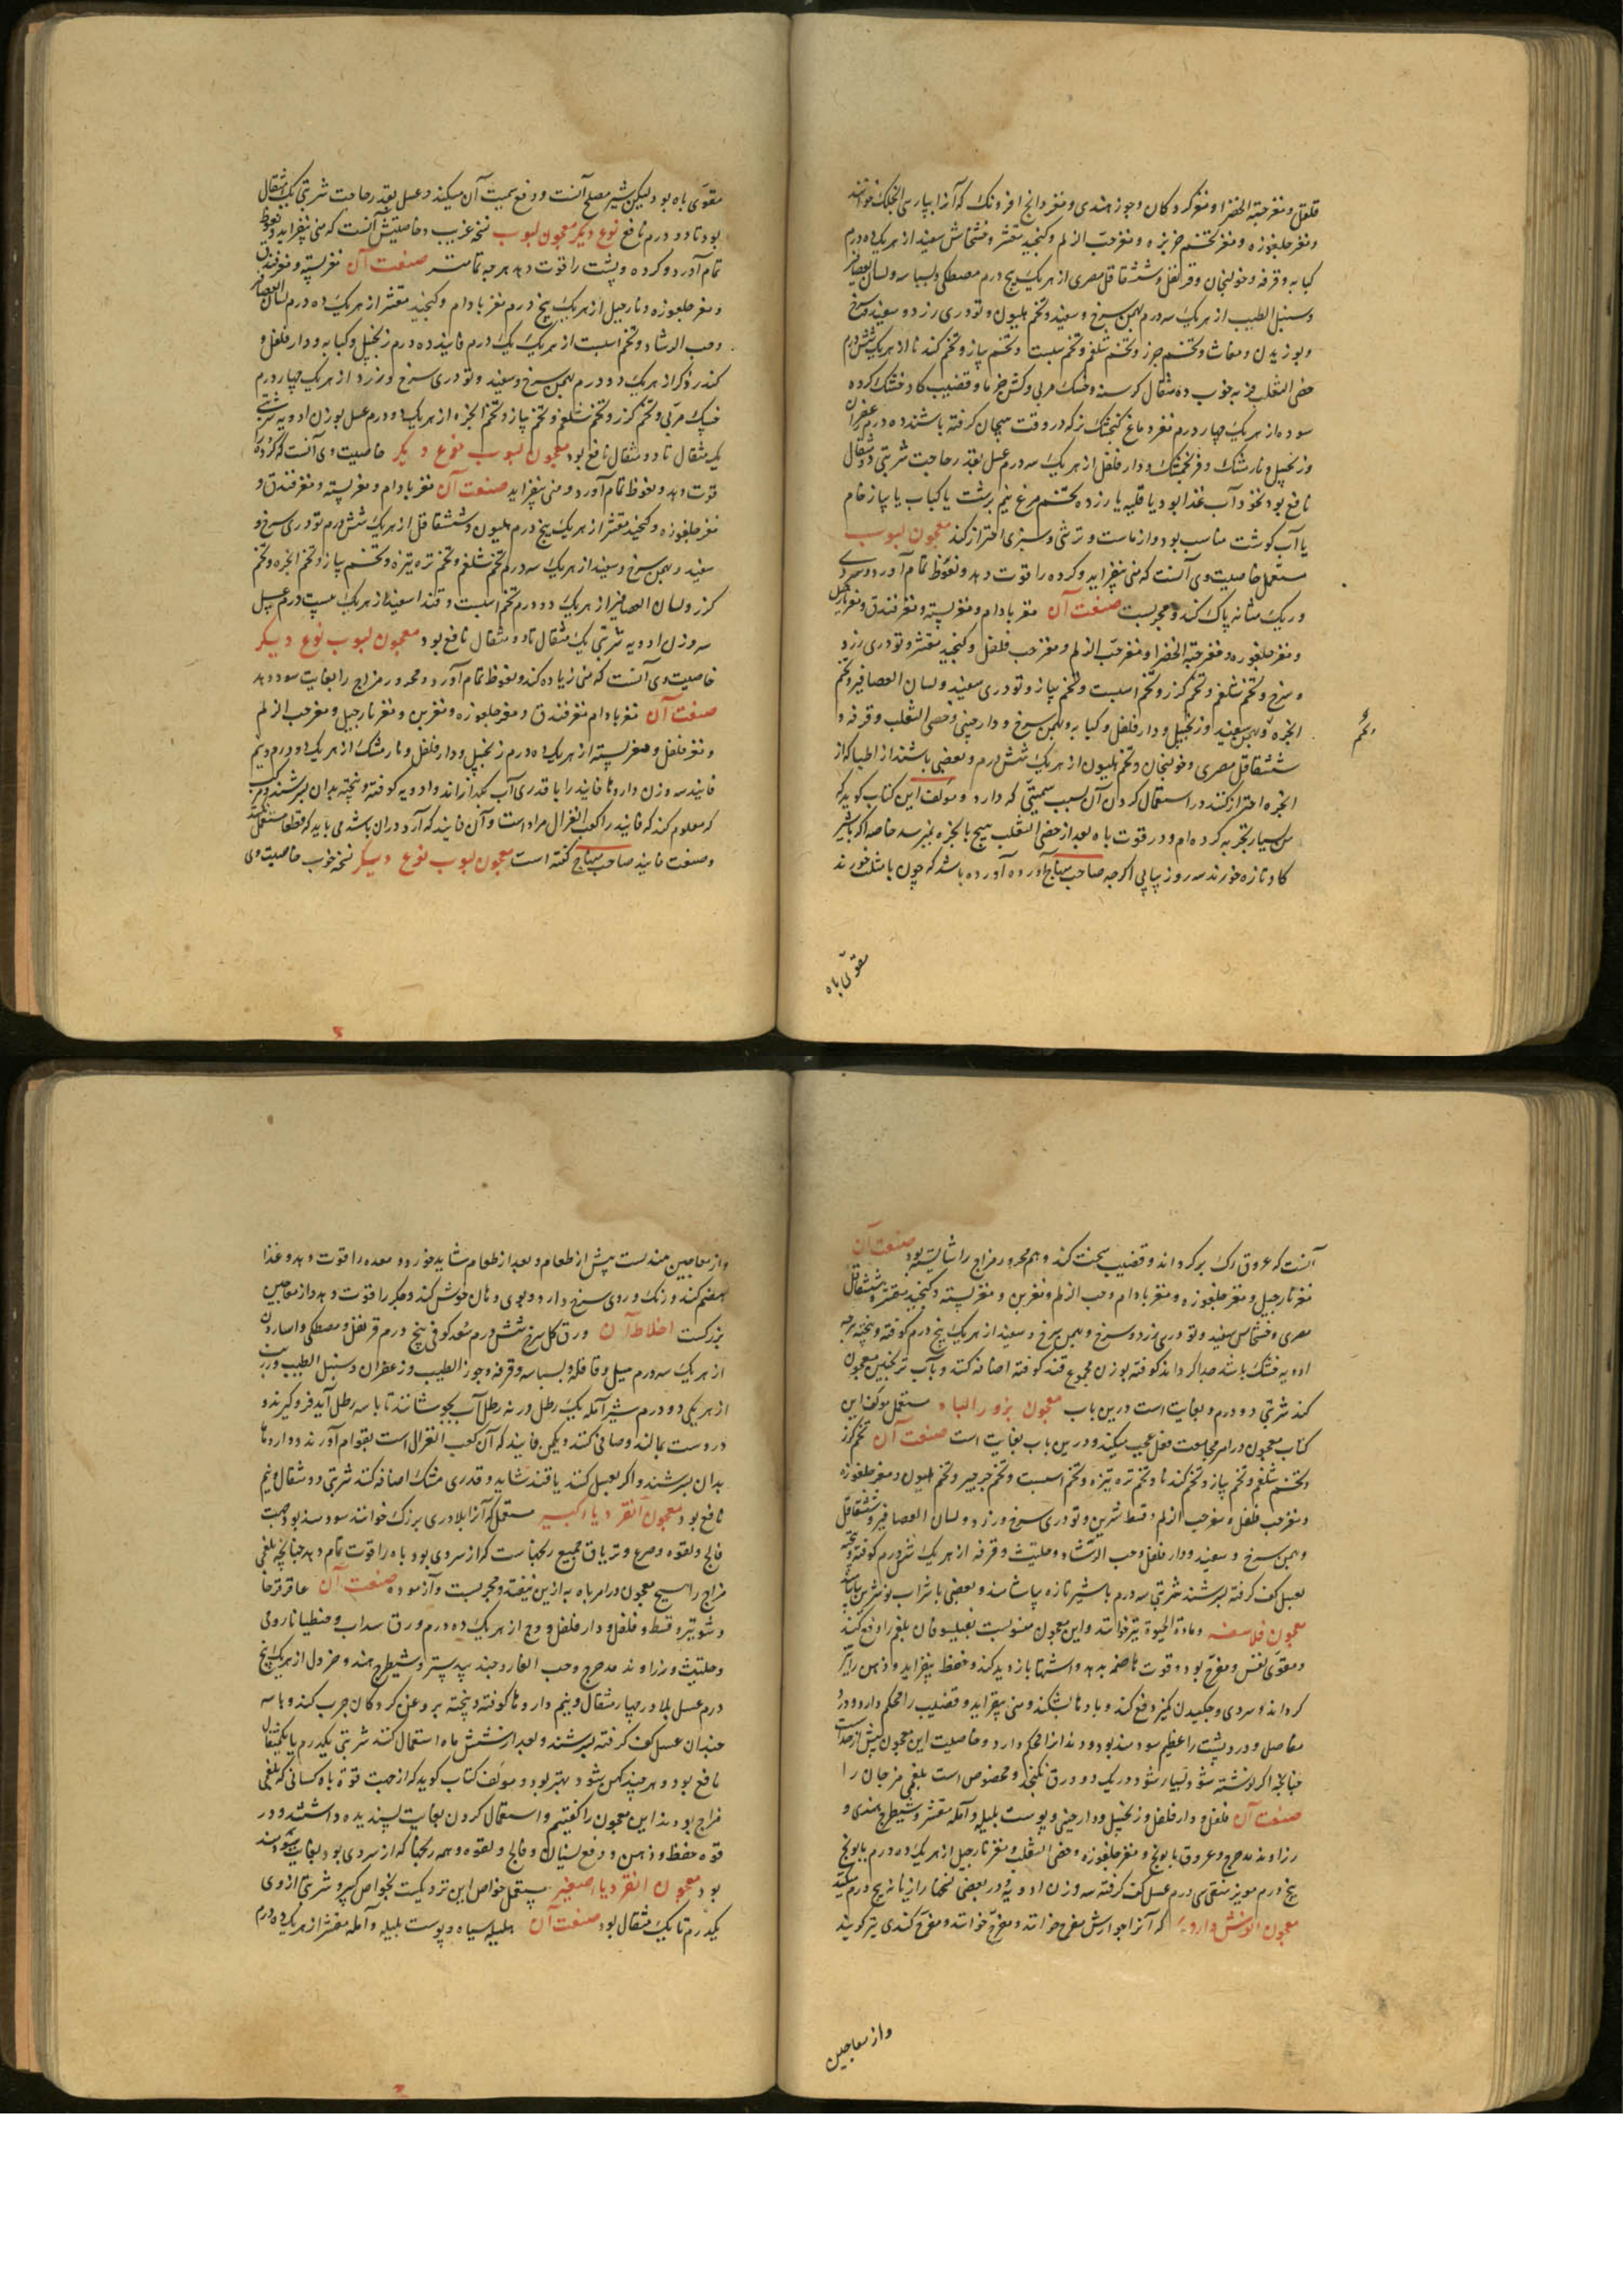 فلفل و مغز حبة الخضرا و مغز کردکان و جوز هندی و مغز
و مغز جلغوزه و مغز تخم خربزه و مغز حب الزلم و کنجید مقشر و خشخاش سفید از هر یک ده درم
کبابه و قرفه و خولنجان و قرنفل و شقاقل مصری از هر یک پنج درم مصطکی و بسباسه و لسان العصافیر
و سنبل الطیب از هر یک سه درم بهمن سرخ و سفید و تخم هلیون و تودری زرد و سفید و سرخ
و بوزیدان و مغاث و تخم جزر و تخم شلغم و تخم اسبست و تخم پیاز و تخم کندنا از هر یک شش درم
خصی الثعلب فربه خوب ده مثقال و قضیب کاو خشک کرده
سوده از هر یک چهار درم مغز و دماغ کنجشک نر که در وقت هیجان کرفته باشند ده درم زعفران
و زنجبیل و نارمشک و فرنجمشک و دار فلفل از هر یک سه درم عسل بقدر حاجت شربتی دو مثقال
نافع بود نخود آب غذا بود یا قلیه یا زرده تخم مرغ نیم برشت یا کباب یا پیاز خام
یا آب کوشت مناسب بود و از ماست و ترشی و سبزی احتراز کند معجون لبوب
مستعمل خاصیت وی آنست که منی بیفزاید و کرده را قوت دهد و نعوظ تمام آورد و سردی
و ریک مثانه پاک کند و مجربست صنعت آن مغز بادام و مغز پسته و مغز فندق و مغز نارجیل
و مغز جلغوزه و مغز حبة الخضرا و مغز حب الزلم و مغز حب فلفل و کنجید مقشر و تودری زرد
و سرخ و تخم شلغم و تخم کزر و تخم اسبست و تخم پیاز و تودری سفید و لسان العصافیر و تخم
انجره و بهمن سفید و زنجبیل و دار فلفل و کبابه و بهمن سرخ و دارچینی و خصی الثعلب و قرفه و
شقاقل مصری و خولنجان و تخم هلیون از هر یک شش درم و بعضی باشند از اطبا که از
انجره احتراز کنند در استعمال کردن آن بسبب سمیتی که دارد و مؤلف این کتاب کوید که
من بسیار تجربه کرده ام و در قوت باه بعد از خصی الثعلب هیچ با انجره نمیرسد خاصه اکر با شیر
کاو تازه خورند سه روز پیاپی اکرچه صاحب منهاج آورده باشد که چون با مثلث خورند
مقوی باه
مقوی باه بود لیکن شیر مصلح آنست و دفع سمیت آن میکند و عسل بقدر حاجت شربتی یک مثقال
بود تا دو درم نافع نوع دیگر معجون لبوب نسخه غریب و خاصیتش آنست که منی بیفزاید و نعوظ
تمام آورد و کرده و پشت را قوت دهد هرچه تمامتر صنعت آن مغز پسته و مغز فندق
و مغز جلغوزه و نارجیل از هر یک پنج درم مغز بادام و کنجید مقشر از هر یک ده درم لسان العصافیر
و حب الرشاد و تخم اسبست از هر یک یک درم فانید ده درم زنجبیل و کبابه و دار فلفل و
کندر ذکر از هر یک دو درم بهمن سرخ و سفید و تودری سرخ و زرد از هر یک چهار درم
مربی و تخم کزر و تخم شلغم و تخم پیاز و تخم انجره از هر یک دو درم عسل بوزن ادویه شربتی
یک مثقال تا دو مثقال نافع بود معجون لبوب نوع دیگر خاصیت وی آنست که کرده را
قوت دهد و نعوظ تمام آورد و منی بیفزاید صنعت آن مغز بادام و مغز پسته و مغز فندق و
مغز جلغوزه و کنجید مقشر از هر یک پنج درم هلیون و شقاقل از هر یک شش درم تودری سرخ و
سفید و بهمن سرخ و سفید از هر یک سه درم تخم شلغم و تخم تره تیزه و تخم پیاز و تخم انجره و تخم
کزر و لسان العصافیر از هر یک دو درم تخم اسبست و قند سفید از هر یک بیست درم عسل
سه وزن ادویه شربتی یک مثقال تا دو مثقال نافع بود معجون لبوب نوع دیگر
خاصیت وی آنست که منی زیاده کند و نعوظ تمام آورد و محرور مزاج را بغایت سود دهد
صنعت آن مغز بادام مغز فندق و مغز جلغوزه و مغز بن و مغز نارجیل و مغز حب الزلم
و مغز فلفل و مغز پسته از هر یک ده درم زنجبیل و دار فلفل و نارمشک از هر یک دو درم و نیم
فانید سه وزن داروها فانید را با قدری آب بکدازاند و ادویه کوفته و بیخته بدان بسرشند
که معلوم کند که فانید را کعب الغزال مراد است و آن فانید که آرد در آن باشد می باید که قطعا مستعمل نکنند
و صنعت فانید صاحب منهاج کفته است معجون لبوب نوع دیگر نسخه خوب خاصیت وی
آنست که عروق رک برکرداند و قضیب سخت کند و هم محرور مزاج را شایسته بود صنعت آن
مغز نارجیل و مغز جلغوزه و مغز بادام و حب الزلم و مغز بن و مغز پسته و کنجید مقشر و شقاقل
مصری و خشخاش سفید و تودری زرد و سرخ و بهمن سرخ و سفید از هر یک پنج درم کوفته و بیخته هرچه
ادویه خشک باشد جدا کرداند کوفته بوزن مجموع قند کوفته اضافه کند و بآب ترنجبین معجون
کند شربتی دو درم و بغایت است درین باب معجون بزور الباه مستعمل مؤلف این
کتاب معجون در امر مجامعت فعل عجیب میکند و درین باب بغایت است صنعت آن تخم کزر
و تخم شلغم و تخم پیاز و تخم کندنا و تخم تره تیزه و تخم اسبست و تخم جرجیر و تخم هلیون و مغز جلغوزه
و مغز حب فلفل و مغز حب الزلم و قسط شیرین و تودری سرخ و زرد و لسان العصافیر و شقاقل
و بهمن سرخ و سفید و دار فلفل و حب الرشاد و حلتیت و قرفه از هر یک شش درم کوفته و بیخته
بعسل کف کرفته بسرشند شربتی سه درم با شیر تازه بیاشامند و بعضی با شراب نوشیدن باید
معجون فلاسفه و مادة الحیوة نیز خوانند و این معجون منسوبست بفیلسوفان بلغم را دفع کند
و مقوی نفس و مفرح بود و قوت هاضمه بدهد و اشتها باز دید کند و حفظ بیفزاید و ذهن را تیز
کرداند و سردی و چکیدن کمیز دفع کند و بادها بشکند و منی بیفزاید و قضیب را محکم دارد و درد
مفاصل و درد پشت را عظیم سودمند بود و دندانرا محکم دارد و خاصیت این معجون بیش از حد است
چنانچه اکر نوشته شود بسیار شود در یک دو ورق نکنجد و مخصوص است بلغمی مزجان را
صنعت آن فلفل و دار فلفل و زنجبیل و دارچینی و پوست بلیله و آمله مقشر و شیطرج هندی و
زراوند مدحرج و عروق بابونج و مغز جلغوزه و خصی الثعلب و مغز نارجیل از هر یک ده درم بابونج
پنج درم مویز منقی سی درم عسل کف کرفته سه وزن ادویه و در بعضی نسخها رازیانه پنج درم میکنند
معجون انوش دارویه که آنرا جوارش مفرح خوانند و مفرح خوانند و مفرح کندی نیز کویند
واز معاجین
واز معاجین هندست پیش از طعام و بعد از طعام شاید خورد و معده را قوت دهد و غذا
هضم کند و رنک و روی سرخ دارد و بوی دهان خوش کند و جکر را قوت دهد و از معاجین
بزرکست اخلاط آن ورق کل سرخ شش درم سعد کوفی پنج درم قرنفل و مصطکی و اسارون
از هر یک سه درم هیل و قاقله و بسباسه و قرفه و جوز الطیب و زعفران و سنبل الطیب و زرنب
از هر یکی دو درم شیر آمله یک رطل در نه رطل آب بجوشانند تا با سه رطل آید فروکیرند و
در دست بمالند و صافی کنند و یکمن فانید که آن کعب الغزال است بقوام آورند و داروها
بدان بسرشند و اکر بعسل کنند یا قند شاید و قدری مشک اضافه کنند شربتی دو مثقال و نیم
نافع بود معجون انقردیاء کبیر مستعمل که آنرا بلادری بزرک خوانند سودمند بود جهت
فالج و لقوه و صرع و تریاق جمیع رنجهاست که از سردی بود باه را قوت تمام دهد چنانچه بلغمی
مزاج را هیچ معجون در امر باه به ازین نیفتد و مجربست و آزموده صنعت آن عاقرقرحا
و شونیز و قسط و فلفل و دار فلفل و وج از هر یک ده درم ورق سداب و جنطیانا رومی
و حلتیت و زراوند مدحرج و حب الغار و جند بیدستر و شیطرج هند و خردل از هر یک پنج
درم عسل بلادر چهار مثقال و نیم داروها کوفته و بیخته بروغن کردکان چرب کند و با سه
چندان عسل کف کرفته بسرشند و بعد از شش ماه استعمال کنند شربتی یکدرم یا یکمثقال
نافع بود و هر چند کهن شود بهتر بود و مؤلف کتاب کوید که از جهت قوة باه کسانی که بلغمی
مزاج بودند این معجون را کفتیم و استعمال کردن بغایت پسندیده داشتند و در
قوه حفظ و ذهن و دفع نسیان و فالج و لقوه و همه رنجها که از سردی بود بغایت سودمند
بود معجون انقردیاء صغیر مستعمل خواص این نزدیکیست بخواص کبیر و شربتی از وی
یکدرم تا یک مثقال بود صنعت آن هلیله سیاه و پوست بلیله و آمله مقشر از هر یک ده درم